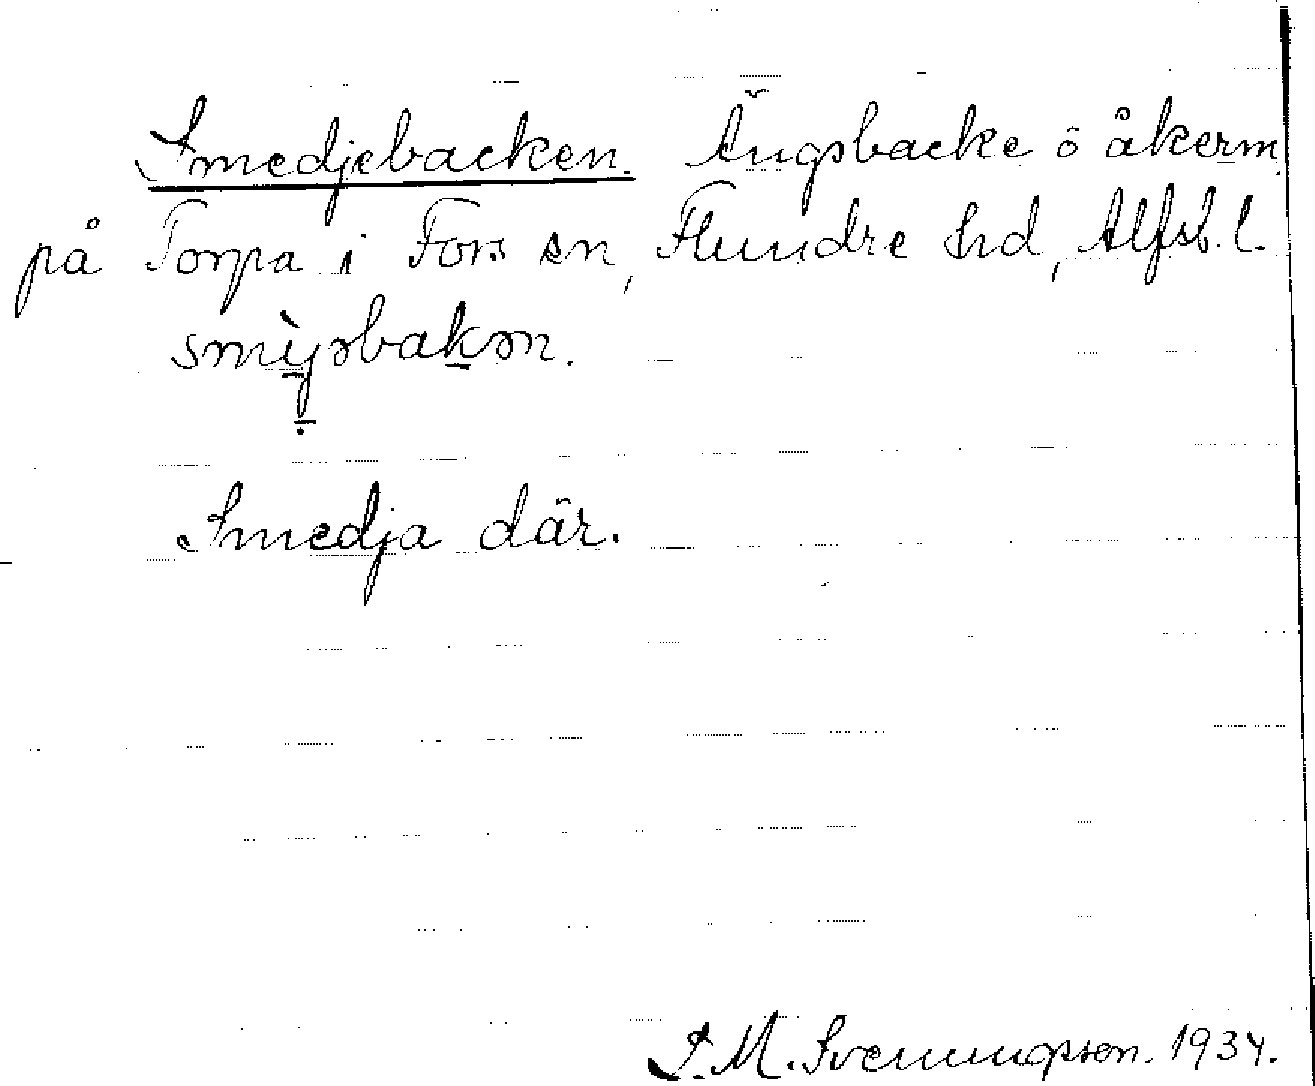 Smedjebacken. Ängsbacke o åkerm.
på Torpa i Fors sn, Flundre hd, Älfsb. l.
smìjəbakən.
Smedja där.
S. M. Svenungsson. 1934.